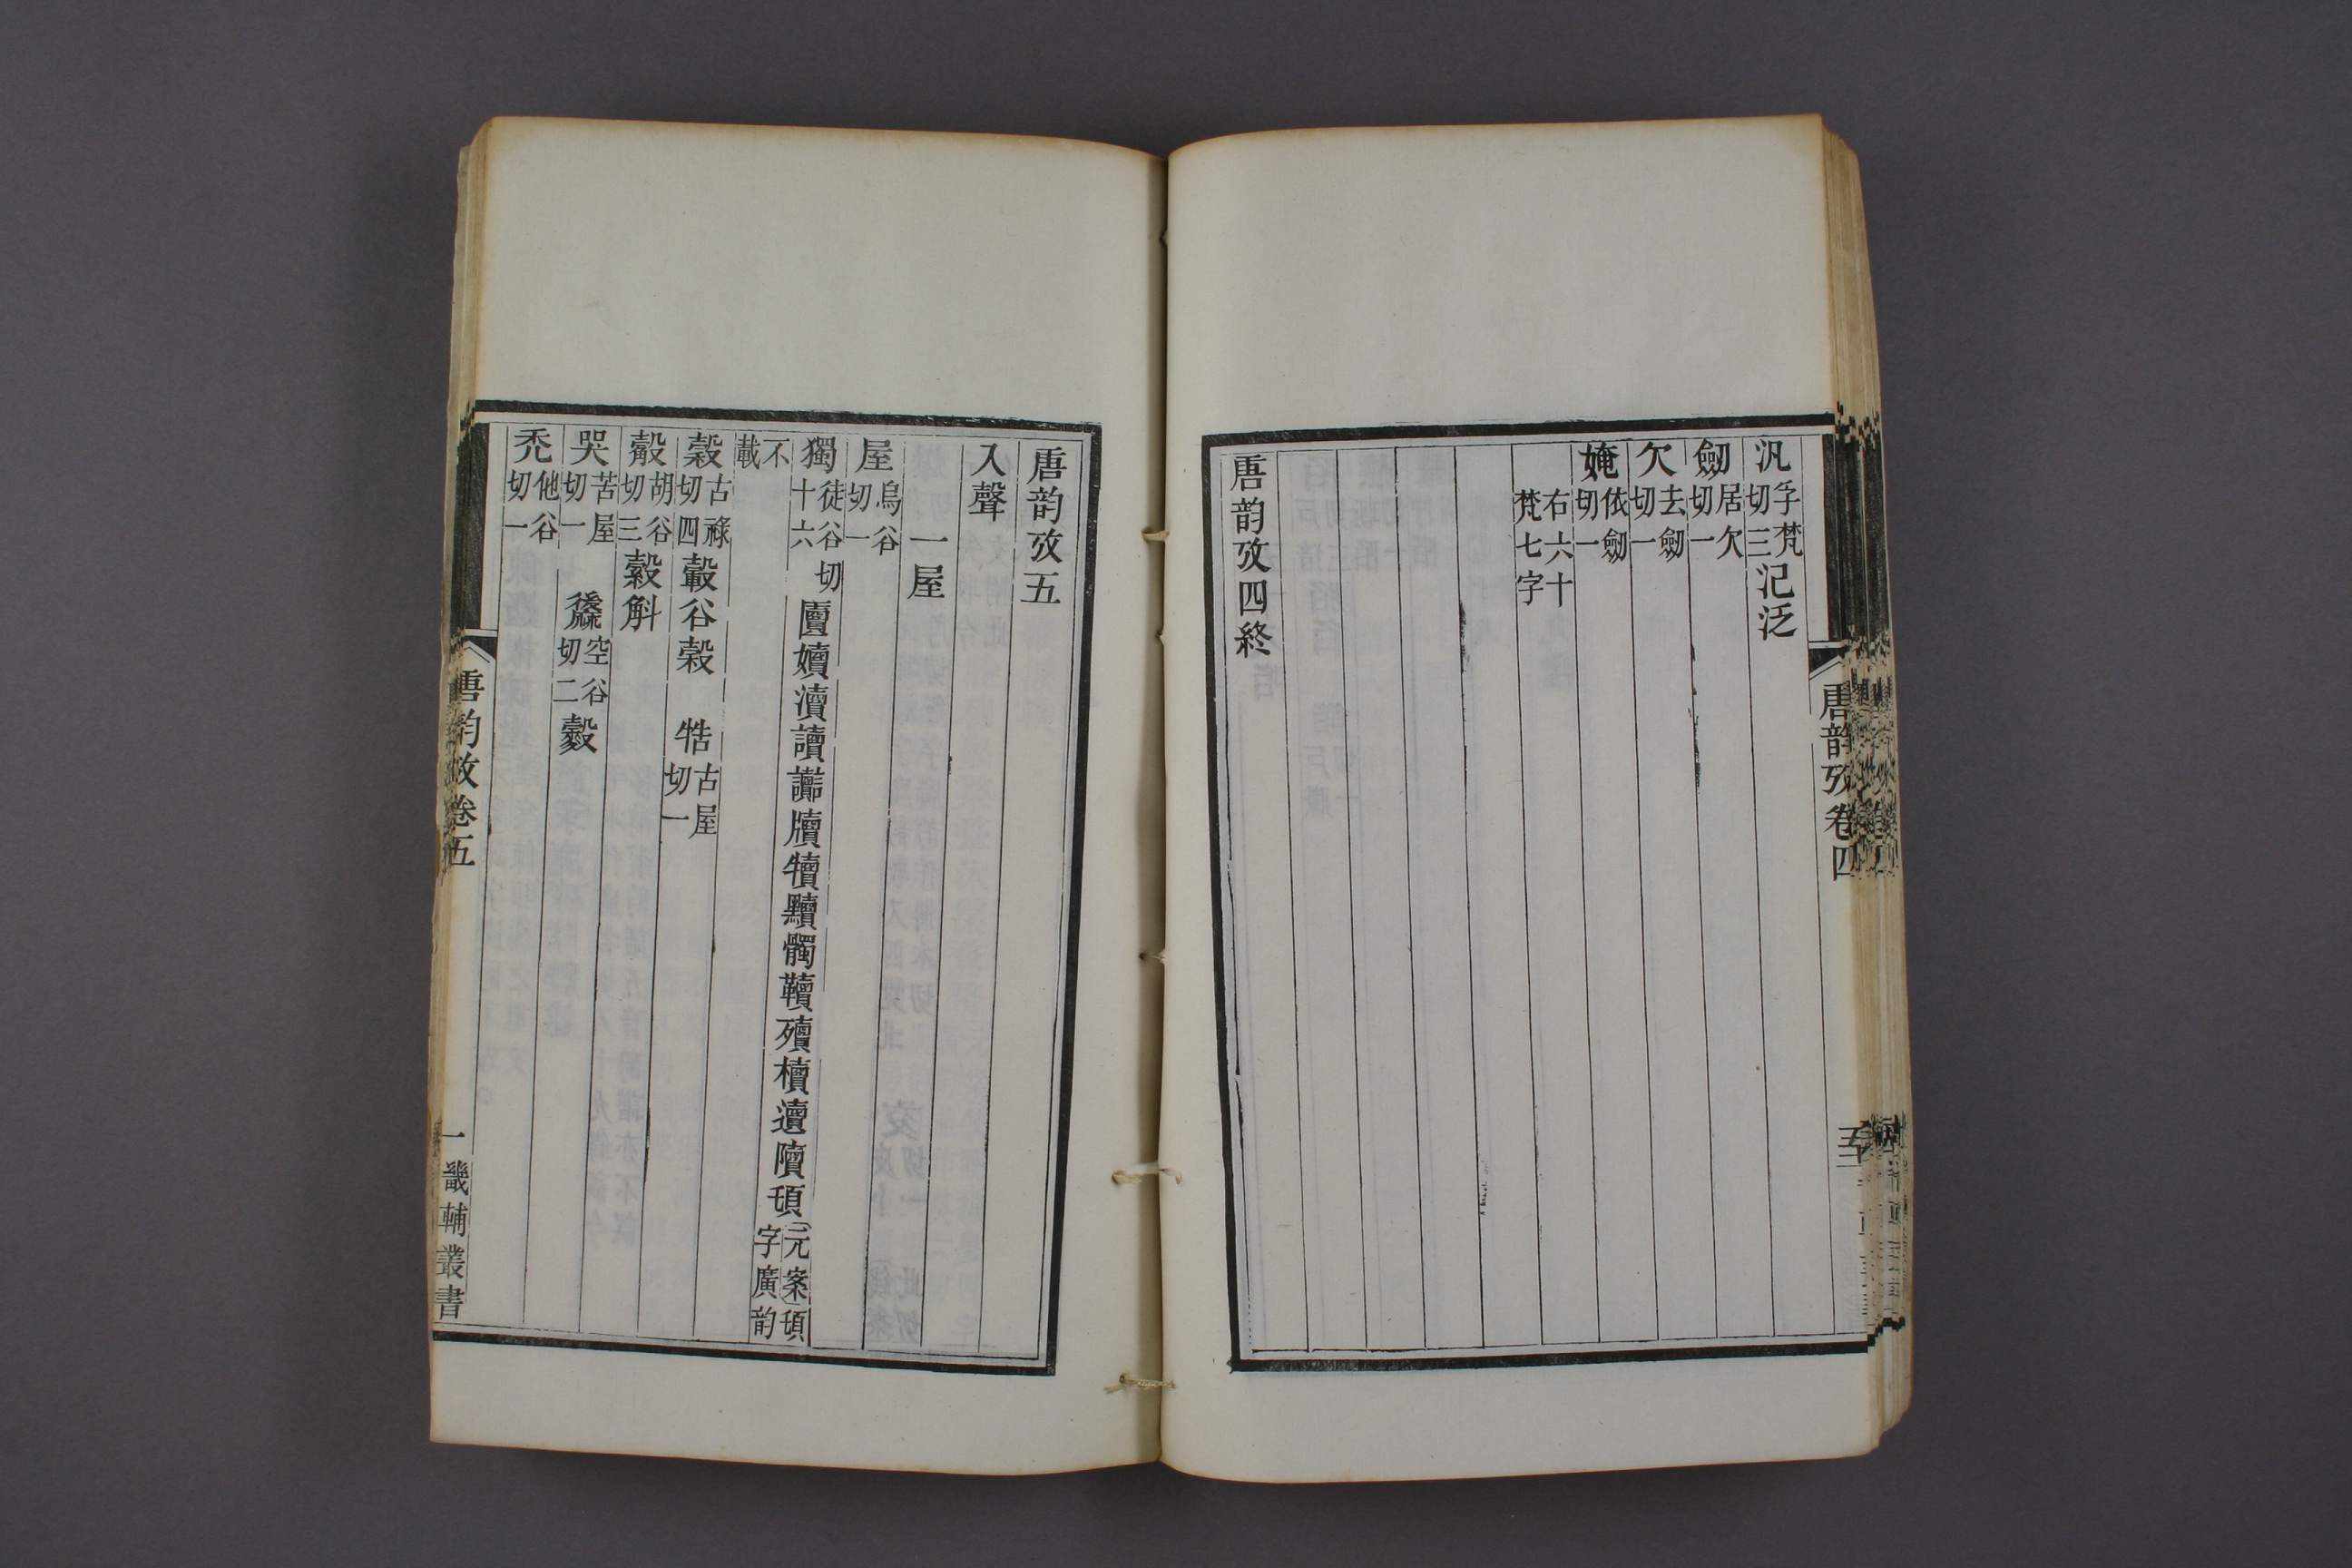 汎孚梵切三汜泛
劒居欠切一
欠去劒切一
㛪依劒切一
右六十梵七字
唐韵攷四終
唐韵攷卷四
唐韵攷五
入聲
一屋
屋烏谷切一
獨徒谷切十六匵嬻瀆讀讟牘犢黷髑韇殰櫝遺隫頊元案頊字廣韵
不載
穀古祿切四轂谷榖 牿古屋切一
㱿胡谷切三縠斛
哭苦屋切一 䅽空谷切二㱿
禿他谷切一
唐韵攷卷五
一 畿輔叢書